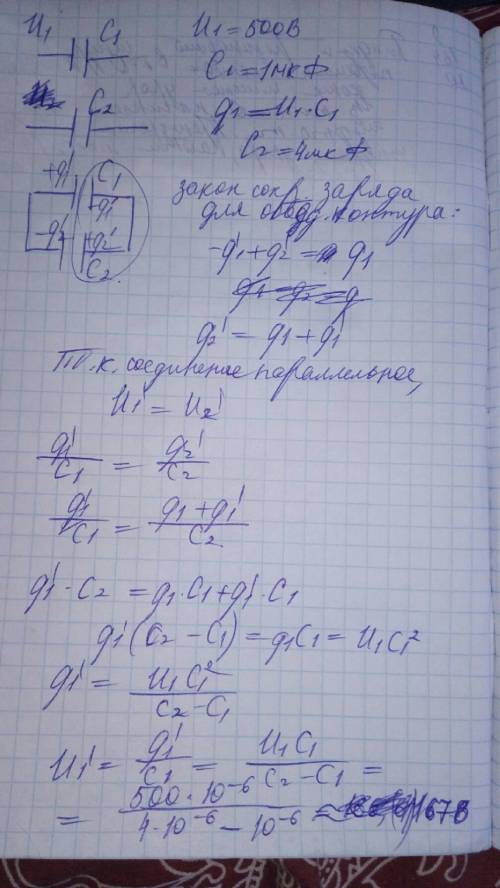 U₁ C₁
U₁ = 500В
C₁ = 1мкФ
C₂
q₁ = U₁ · C₁
C₂ = 4мкФ
+q₁' C₁
q₁'
-q₂' +q₂'
C₂
закон сохр. заряда
для обозн. контура:
-q₁' + q₂' = q₁
q₂' = q₁ + q₁'
Т.к. соединение параллельное,
U₁' = U₂'
q₁'/C₁ = q₂'/C₂
q₁'/C₁ = (q₁ + q₁')/C₂
q₁' · C₂ = q₁ · C₁ + q₁' · C₁
q₁'(C₂ - C₁) = q₁C₁ = U₁C₁²
q₁' = U₁C₁²/(C₂ - C₁)
U₁' = q₁'/C₁ = U₁C₁/(C₂ - C₁) =
= 500 · 10⁻⁶/(4 · 10⁻⁶ - 10⁻⁶) ≈ 167В